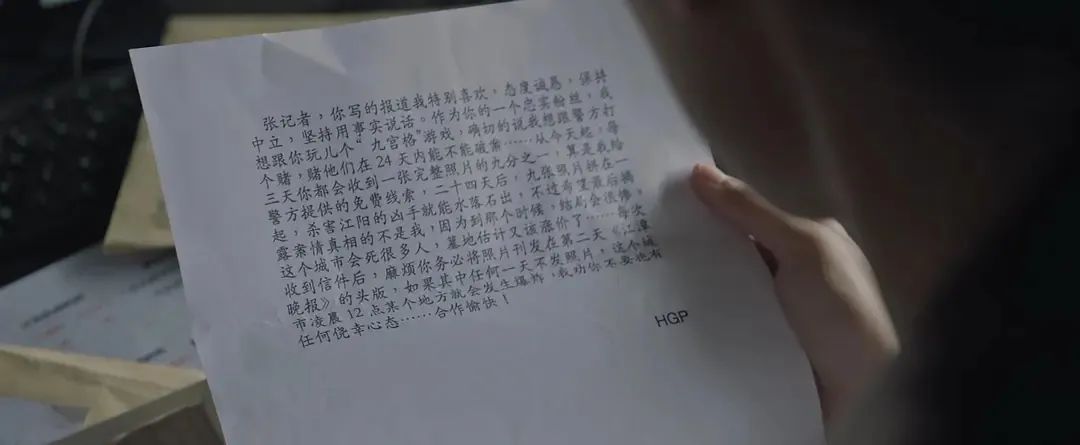 张记者，你写的报道我特别喜欢，态度诚恳，保持
中立，坚持用事实说话。作为你的一个忠实粉丝，我
想跟你玩儿个“九宫格”游戏，确切的说我想跟警方打
个赌，赌他们在24天内能不能破案……从今天起，每
三天你都会收到一张完整照片的九分之一，算是我给
警方提供的免费线索，二十四天后，九张照片拼在一
起，杀害江阳的凶手就能水落石出，不过希望最后揭
露案情真相的不是我，因为到那个时候，结局会很惨，
这个城市会死很多人，墓地估计又该涨价了……每次
收到信件后，麻烦你务必将照片刊发在第二天《江潭
晚报》的头版，如果其中任何一天不发照片，这个城
市凌晨12点某个地方就会发生爆炸，我劝你不要抱有
任何侥幸心态……合作愉快！
HGP